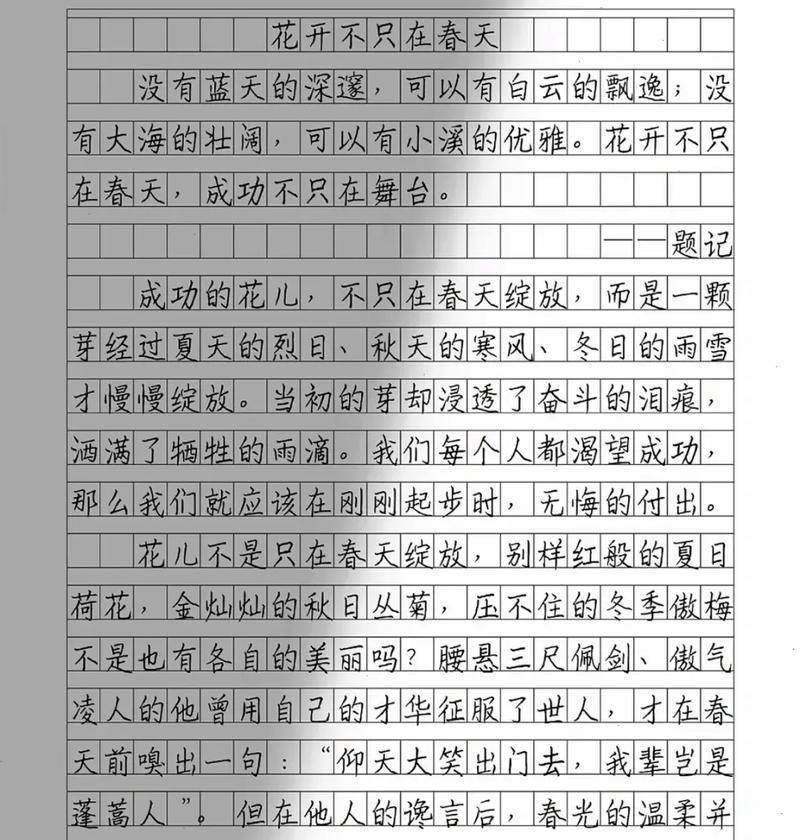 花开不只在春天
没有蓝天的深邃，可以有白云的飘逸；没
有大海的壮阔，可以有小溪的优雅。花开不只
在春天，成功不只在舞台。
——题记
成功的花儿，不只在春天绽放，而是一颗
芽经过夏天的烈日、秋天的寒风、冬日的雨雪
才慢慢绽放。当初的芽却浸透了奋斗的泪痕，
洒满了牺牲的雨滴。我们每个人都渴望成功，
那么我们就应该在刚刚起步时，无悔的付出。
花儿不是只在春天绽放，别样红般的夏日
荷花，金灿灿的秋日丛菊，压不住的冬季傲梅
不是也有各自的美丽吗？腰悬三尺佩剑、傲气
凌人的他曾用自己的才华征服了世人，才在春
天前嗅出一句：“仰天大笑出门去，我辈岂是
蓬蒿人”。但在他人的谗言后，春光的温柔并